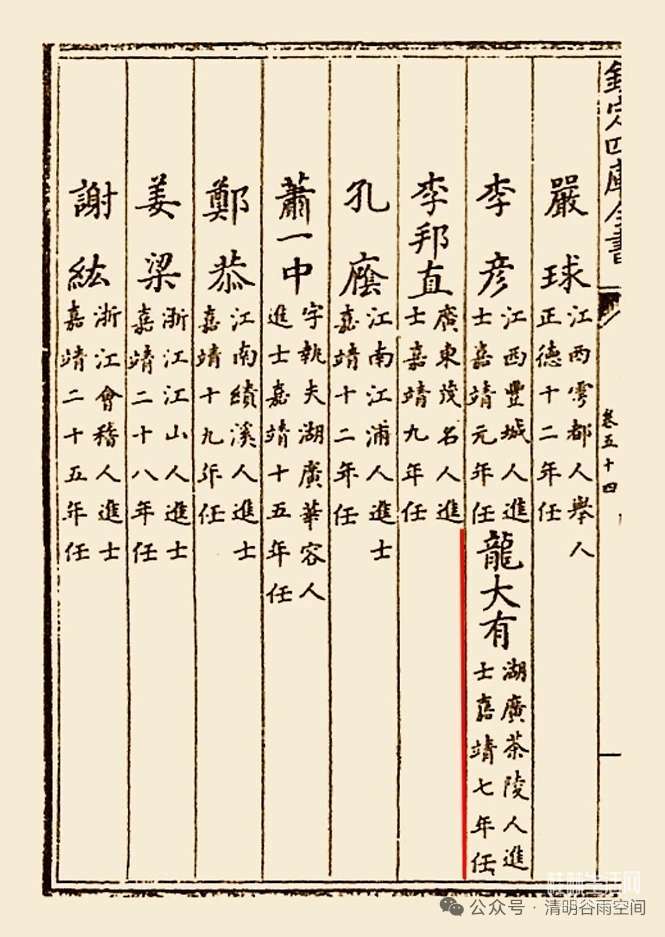 欽定四庫全書
卷五十四
嚴球
江西雩都人舉人
正德十二年任
李彥
江西豐城人進
士嘉靖元年任
龍大有
湖廣茶陵人進
士嘉靖七年任
李邦直
廣東茂名人進
士嘉靖九年任
孔廕
江南江浦人進士
嘉靖十二年任
蕭一中
字執夫湖廣華容人
進士嘉靖十五年任
鄭恭
江南績溪人進士
嘉靖十九年任
姜梁
浙江江山人進士
嘉靖二十八年任
謝紘
浙江會稽人進士
嘉靖二十五年任
桂林生活网
公众号·清明谷雨空间